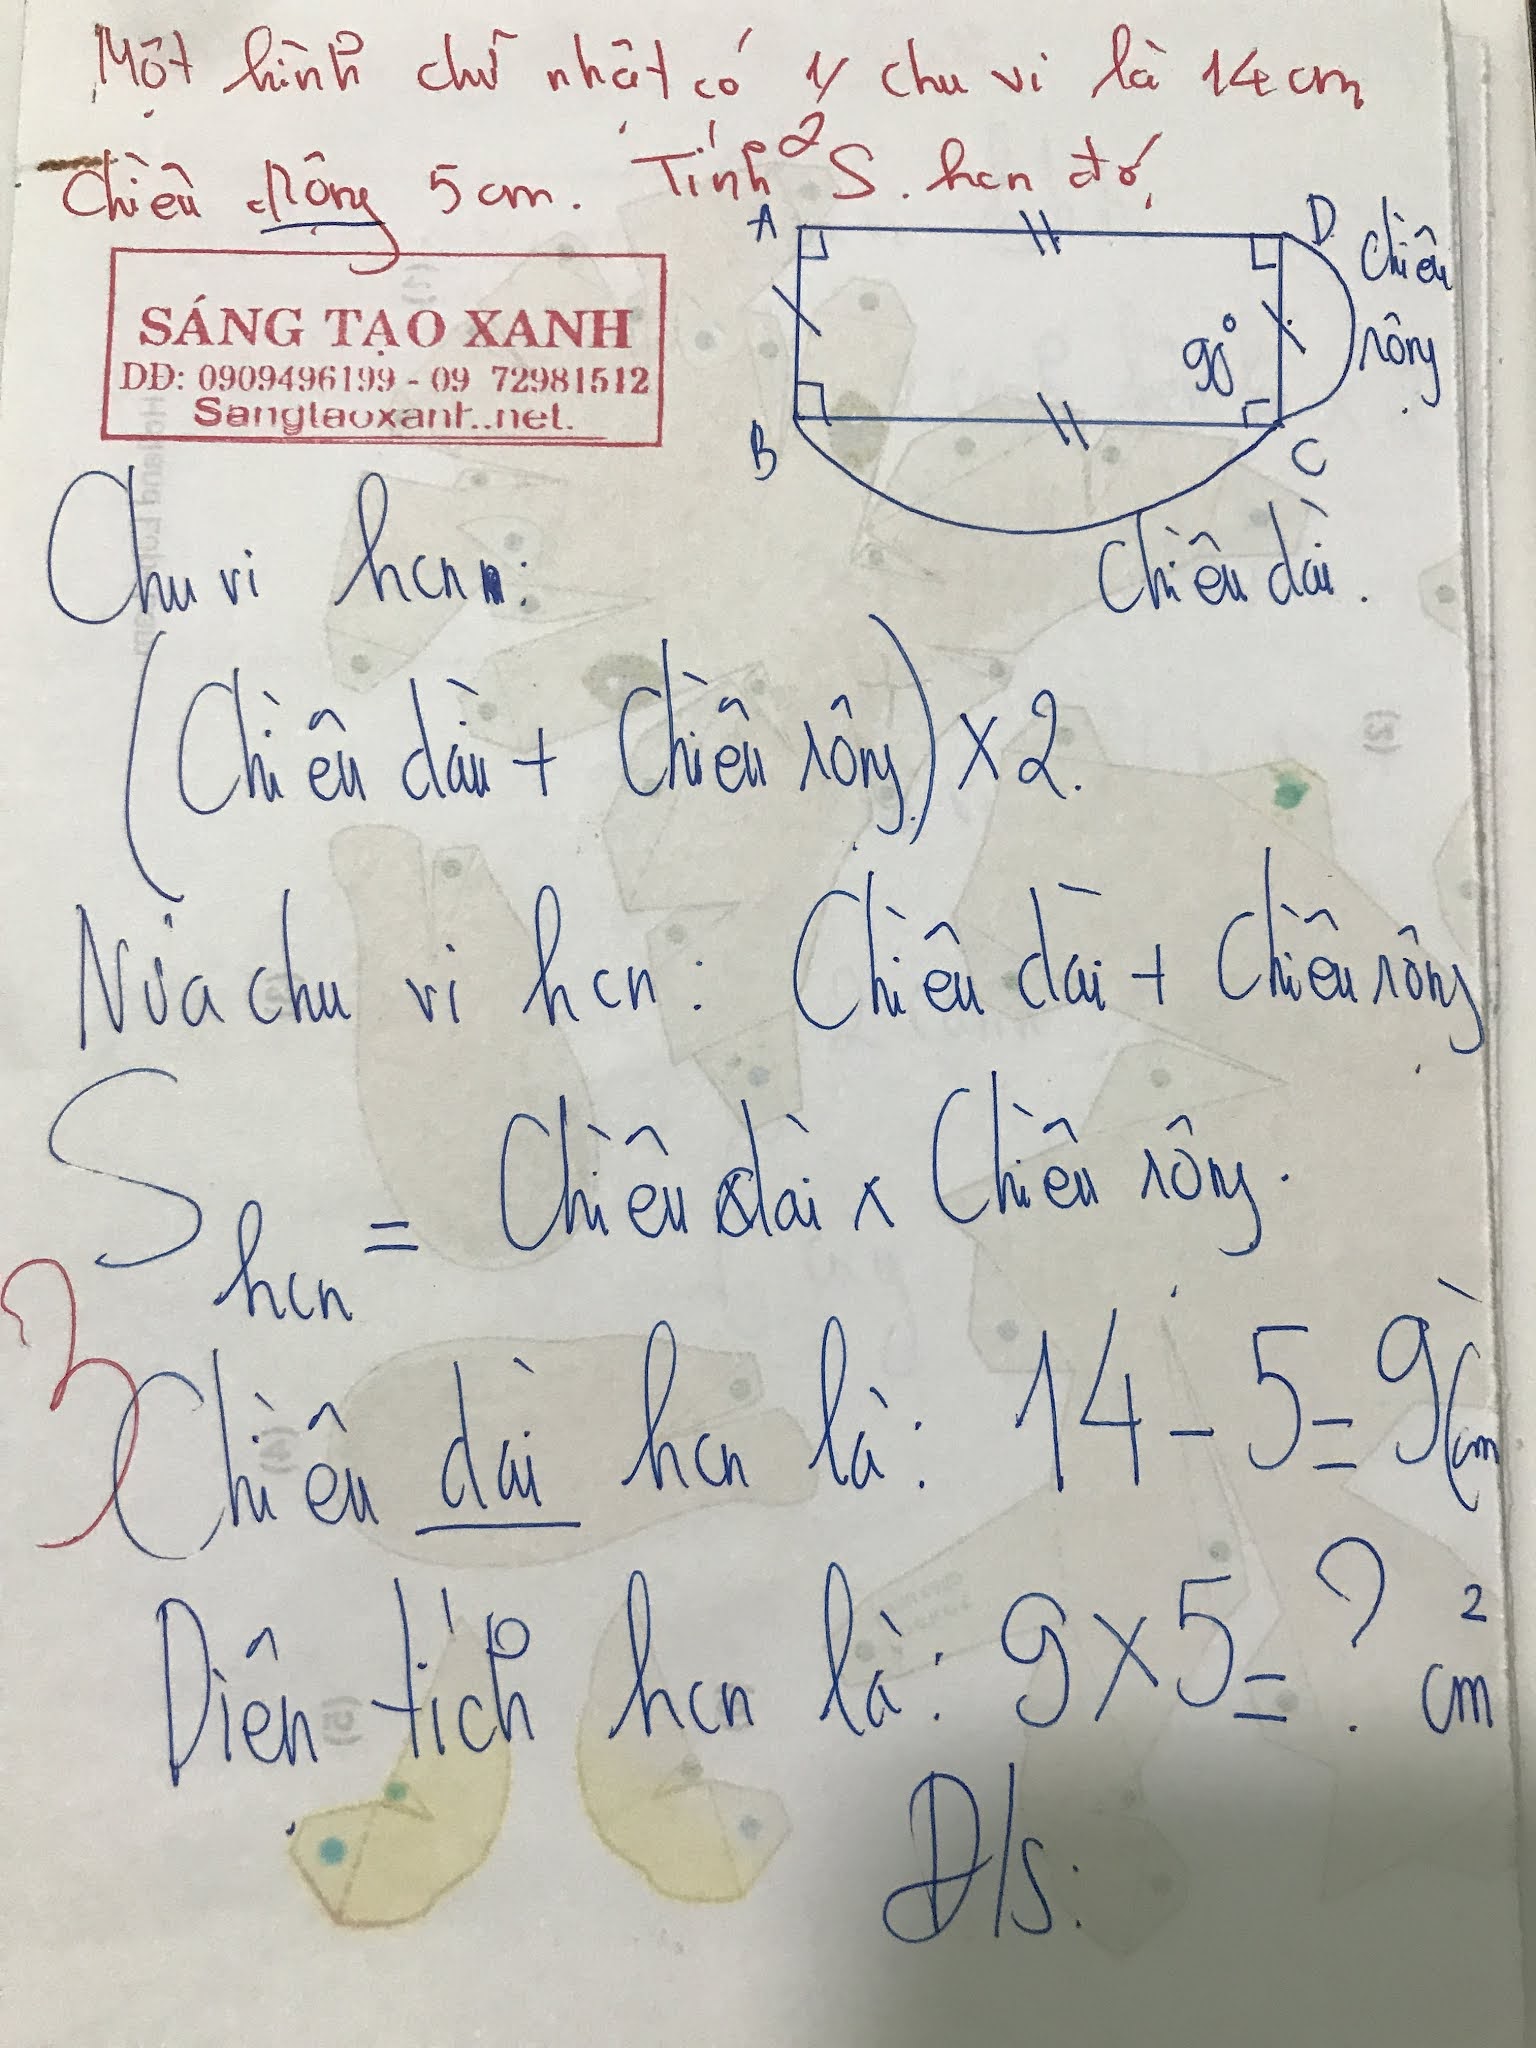 Một hình chữ nhật có 1/2 chu vi là 14 cm
Chiều rộng 5 cm. Tính S. hcn đó.
A
D
Chiều
rộng
90°
B
C
Chiều dài.
SÁNG TẠO XANH
DĐ: 0909496199 - 09 72981512
Sangtaoxanh..net.
Chu vi hcn:
(Chiều dài + Chiều rộng) x 2.
Nửa chu vi hcn: Chiều dài + Chiều rộng
S hcn = Chiều dài x Chiều rộng.
Chiều dài hcn là: 14 - 5 = 9 (cm
Diện tích hcn là: 9 x 5 = ? cm²
Đ/s: